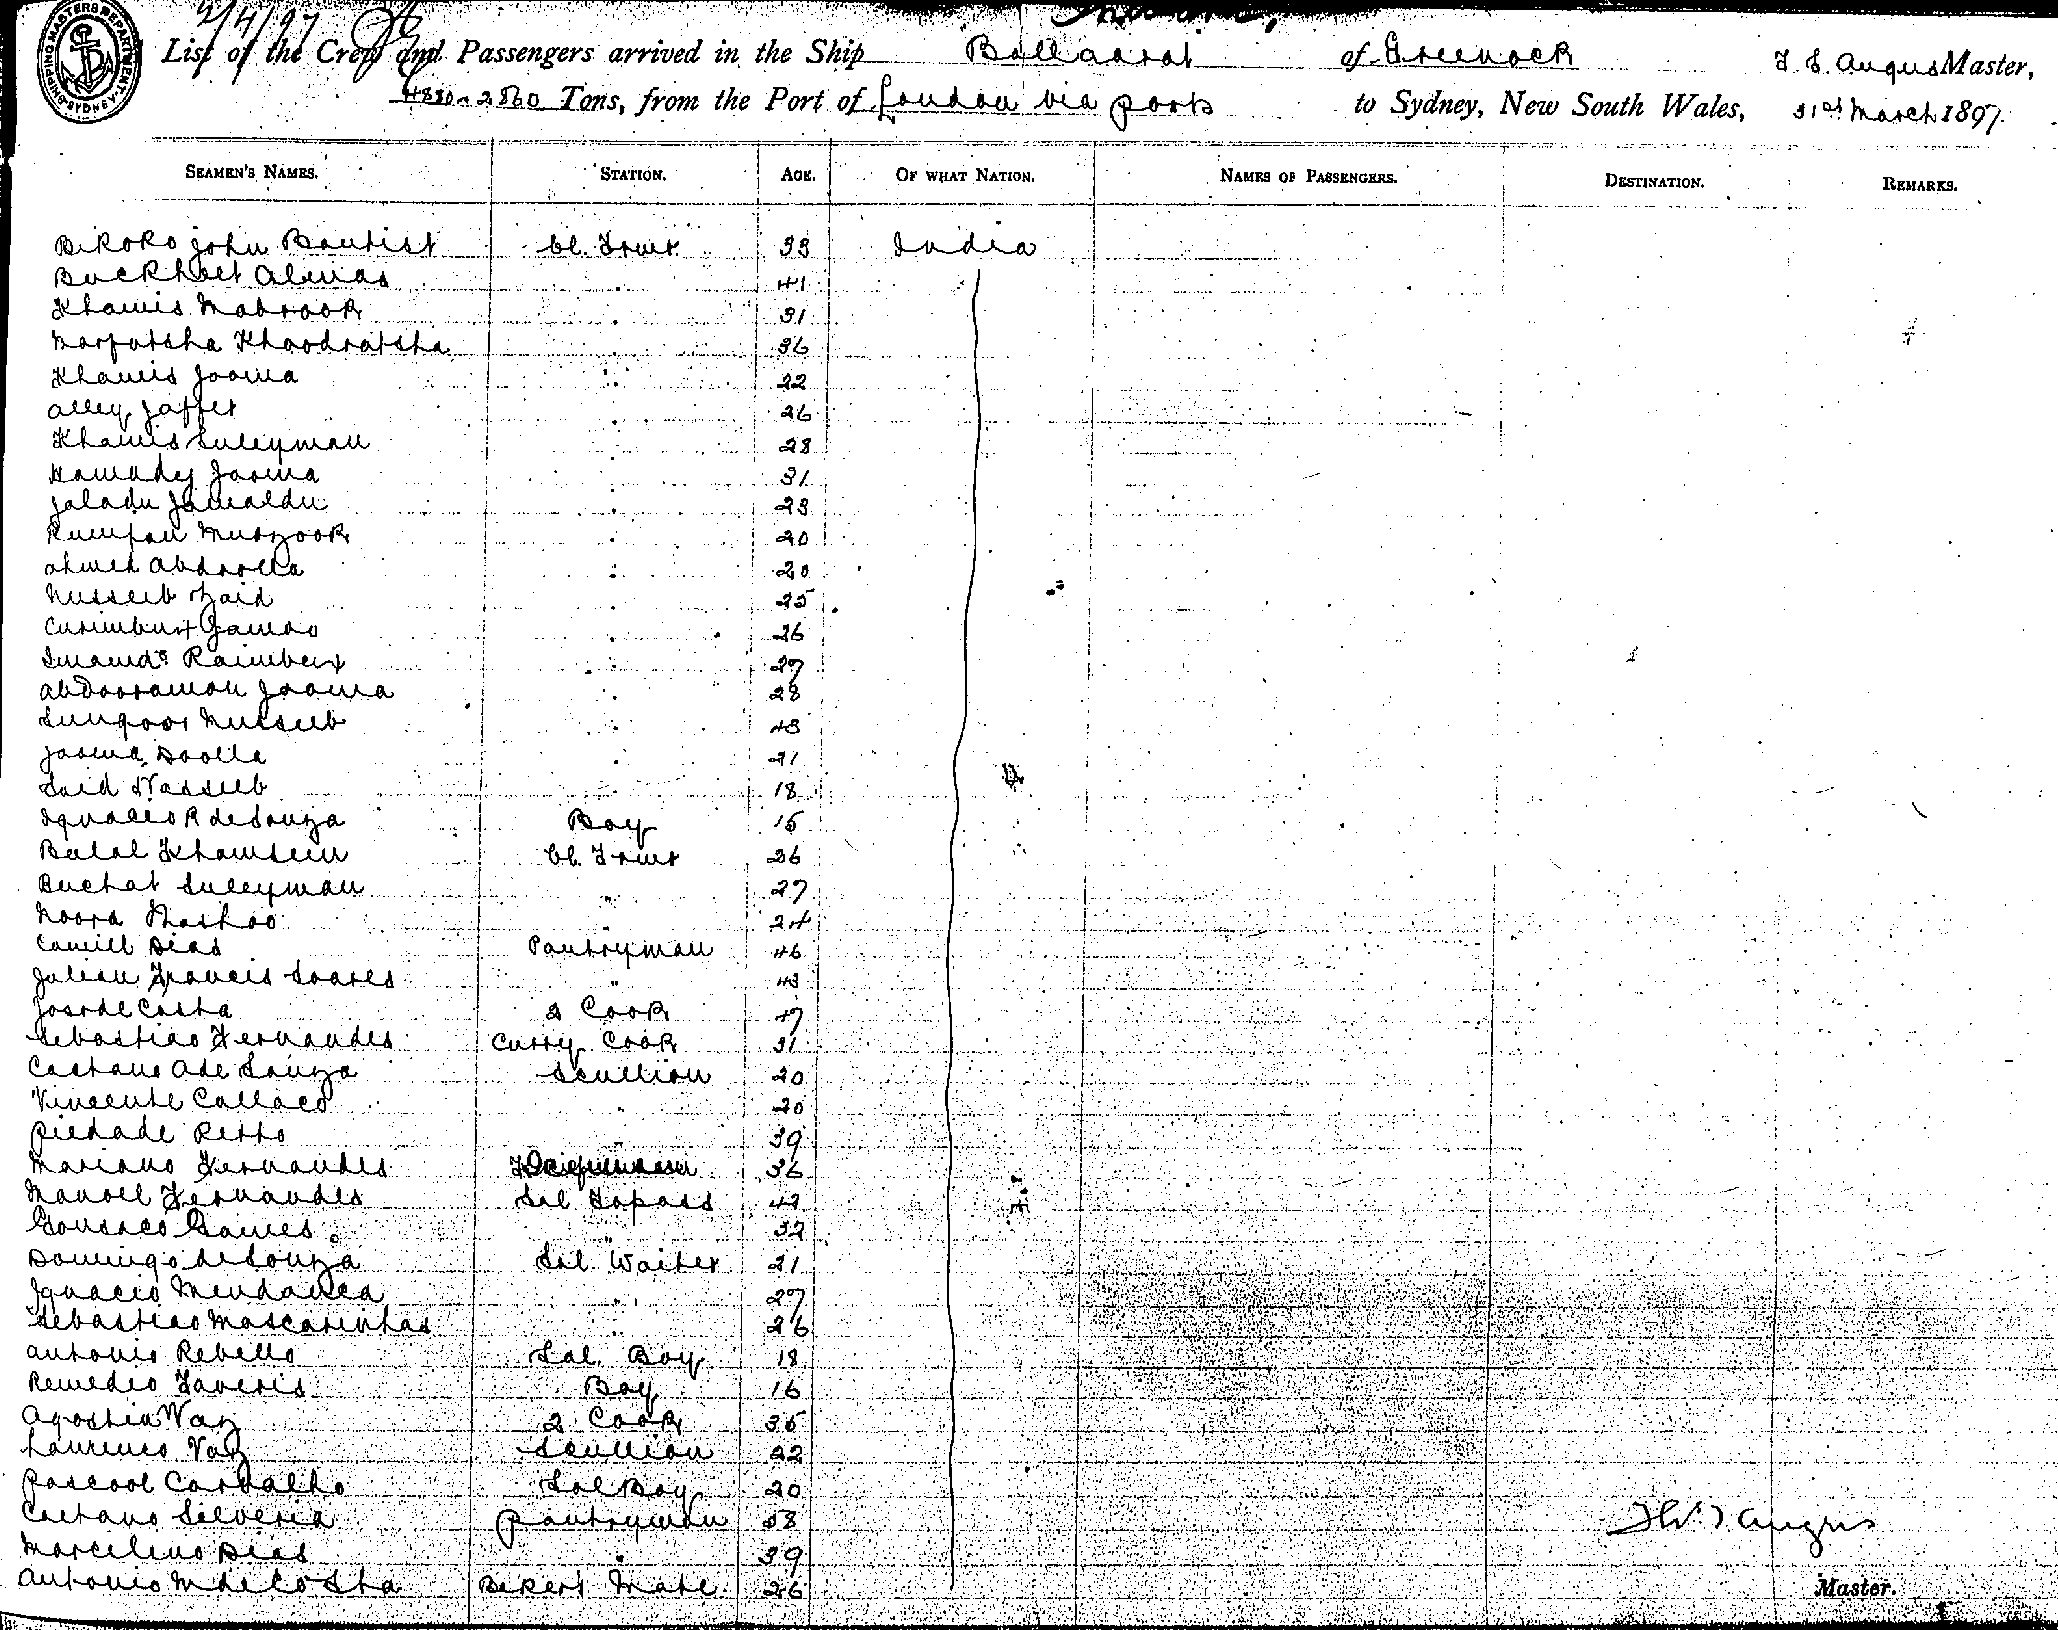 2/4/97
SHIPPING MASTERS DEPARTMENT SYDNEY
List of the Crew and Passengers arrived in the Ship Ballaarat of Greenock F. S. Angus Master,
Tons, from the Port of London via ports to Sydney, New South Wales, 31st March 1897.
SEAMEN'S NAMES. STATION. AGE. OF WHAT NATION. NAMES OF PASSENGERS. DESTINATION. REMARKS.
John Bautist Cl. Trmr 33 India
Almas 41
Khamis Mabrook " 31
Marfutsha Khoodratsha " 36
Khamis Jooma " 22
Alley Jaffer " 26
Khamis Suleyman " 28
Hamady Jooma " 31
Jaladu Jamaldu " 23
Murzook " 20
Ahmed Abdoolla " 20
Nusseeb Zaid " 25
" 26
Raimbux " 27
Abdooraman Jooma " 28
Sungoor Nusseeb " 43
Jooma Doolla 21
Said Nasseeb " 18
Ignacio R de Souza Boy 15
Belal Khamseen Cl. Trmr 26
Buchat Suleyman " 27
Noora 24
Camill Dias Pantryman 46
Julian Francis Soares " 43
Jose de Costa 2 Cook 47
Sebastiao Fernandes Curry Cook 31
Caetano A de Souza Scullion 20
Vincente Collaco " 20
Piedade Retto " 39
Mariano Fernandes 36
Manoel Fernandes Sal Topass 42
Gonsaco Gomes " 32
Domingo de Souza Sal Waiter 21
Ignacio Mendonca " 27
Sebastiao Mascarinhas " 26
Antonio Rebello Sal. Boy 18
Remedio Taveris Boy 16
Agostin Vaz 2 Cook 35
Laurenco Vaz Scullion 22
Pascoal Carvalho Sal Boy 20
Caetano Silveria Pantryman 38
Angus
Marcelino Dias " 39
Antonio M de Costa Bakers Mate 26 Master.